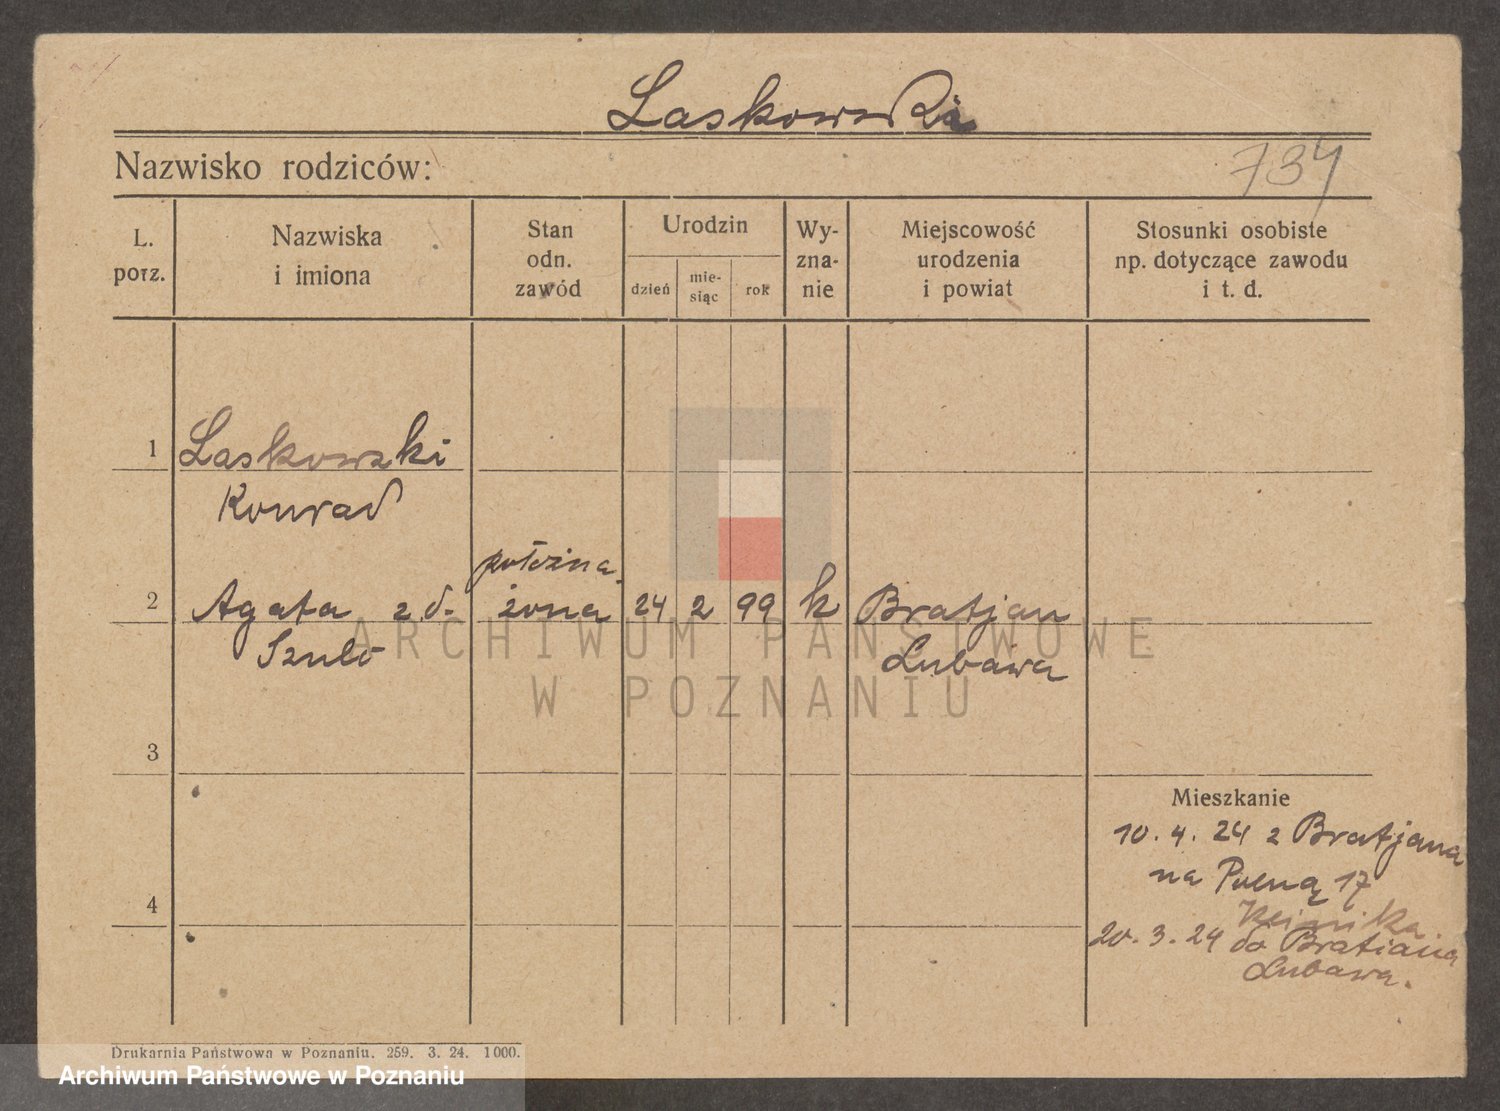 Laskowski
Nazwisko rodziców:
734
L. porz.
Nazwiska i imiona
Stan odn. zawód
Urodzin
dzień
mie-
siąc
rok
Wy-
zna-
nie
Miejscowość urodzenia i powiat
Stosunki osobiste
np. dotyczące zawodu
i t. d.
1
Laskowski
Konrad
położna
2
Agata z d.
żona
24
2
99
k
Bratjan
Szulc
Lubawa
ARCHIWUM PAŃSTWOWE
W POZNANIU
3
Mieszkanie
10. 4. 24 z Bratjana
na Polną 17
4
Klinika
20. 3. 24 do Bratiana
Lubawa.
Drukarnia Państwowa w Poznaniu. 259. 3. 24. 1000.
Archiwum Państwowe w Poznaniu